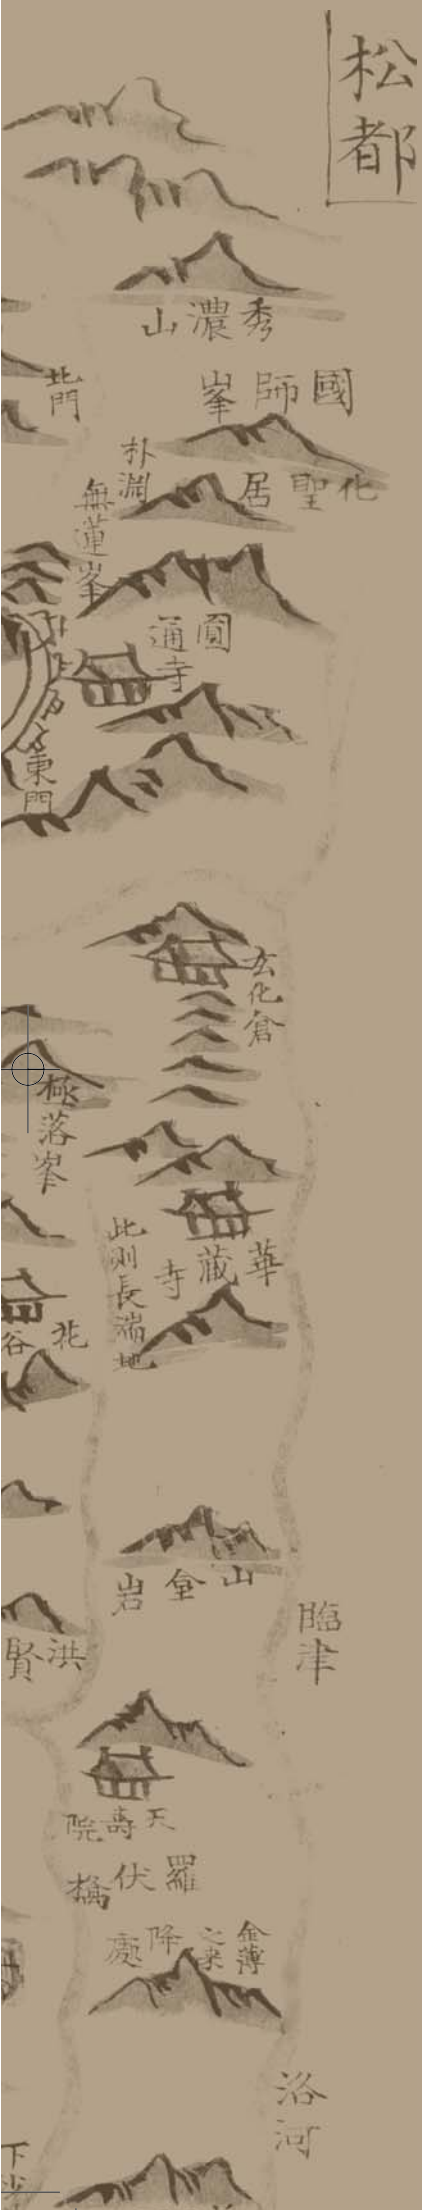 松都
秀濃山
國師峯
北門
化聖居
朴淵
無蓮峯
圓通寺
東門
玄化倉
極落峯
華藏寺
此則長湍地
北谷
山金岩
臨津
洪賢
天壽院
羅伏橋
金薄之來降處
洛河
下